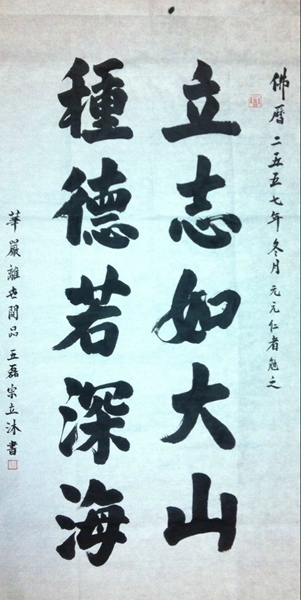 佛曆二五五七年冬月元元仁者勉之
立志如大山
種德若深海
華嚴離世間品 王磊宗立沐書